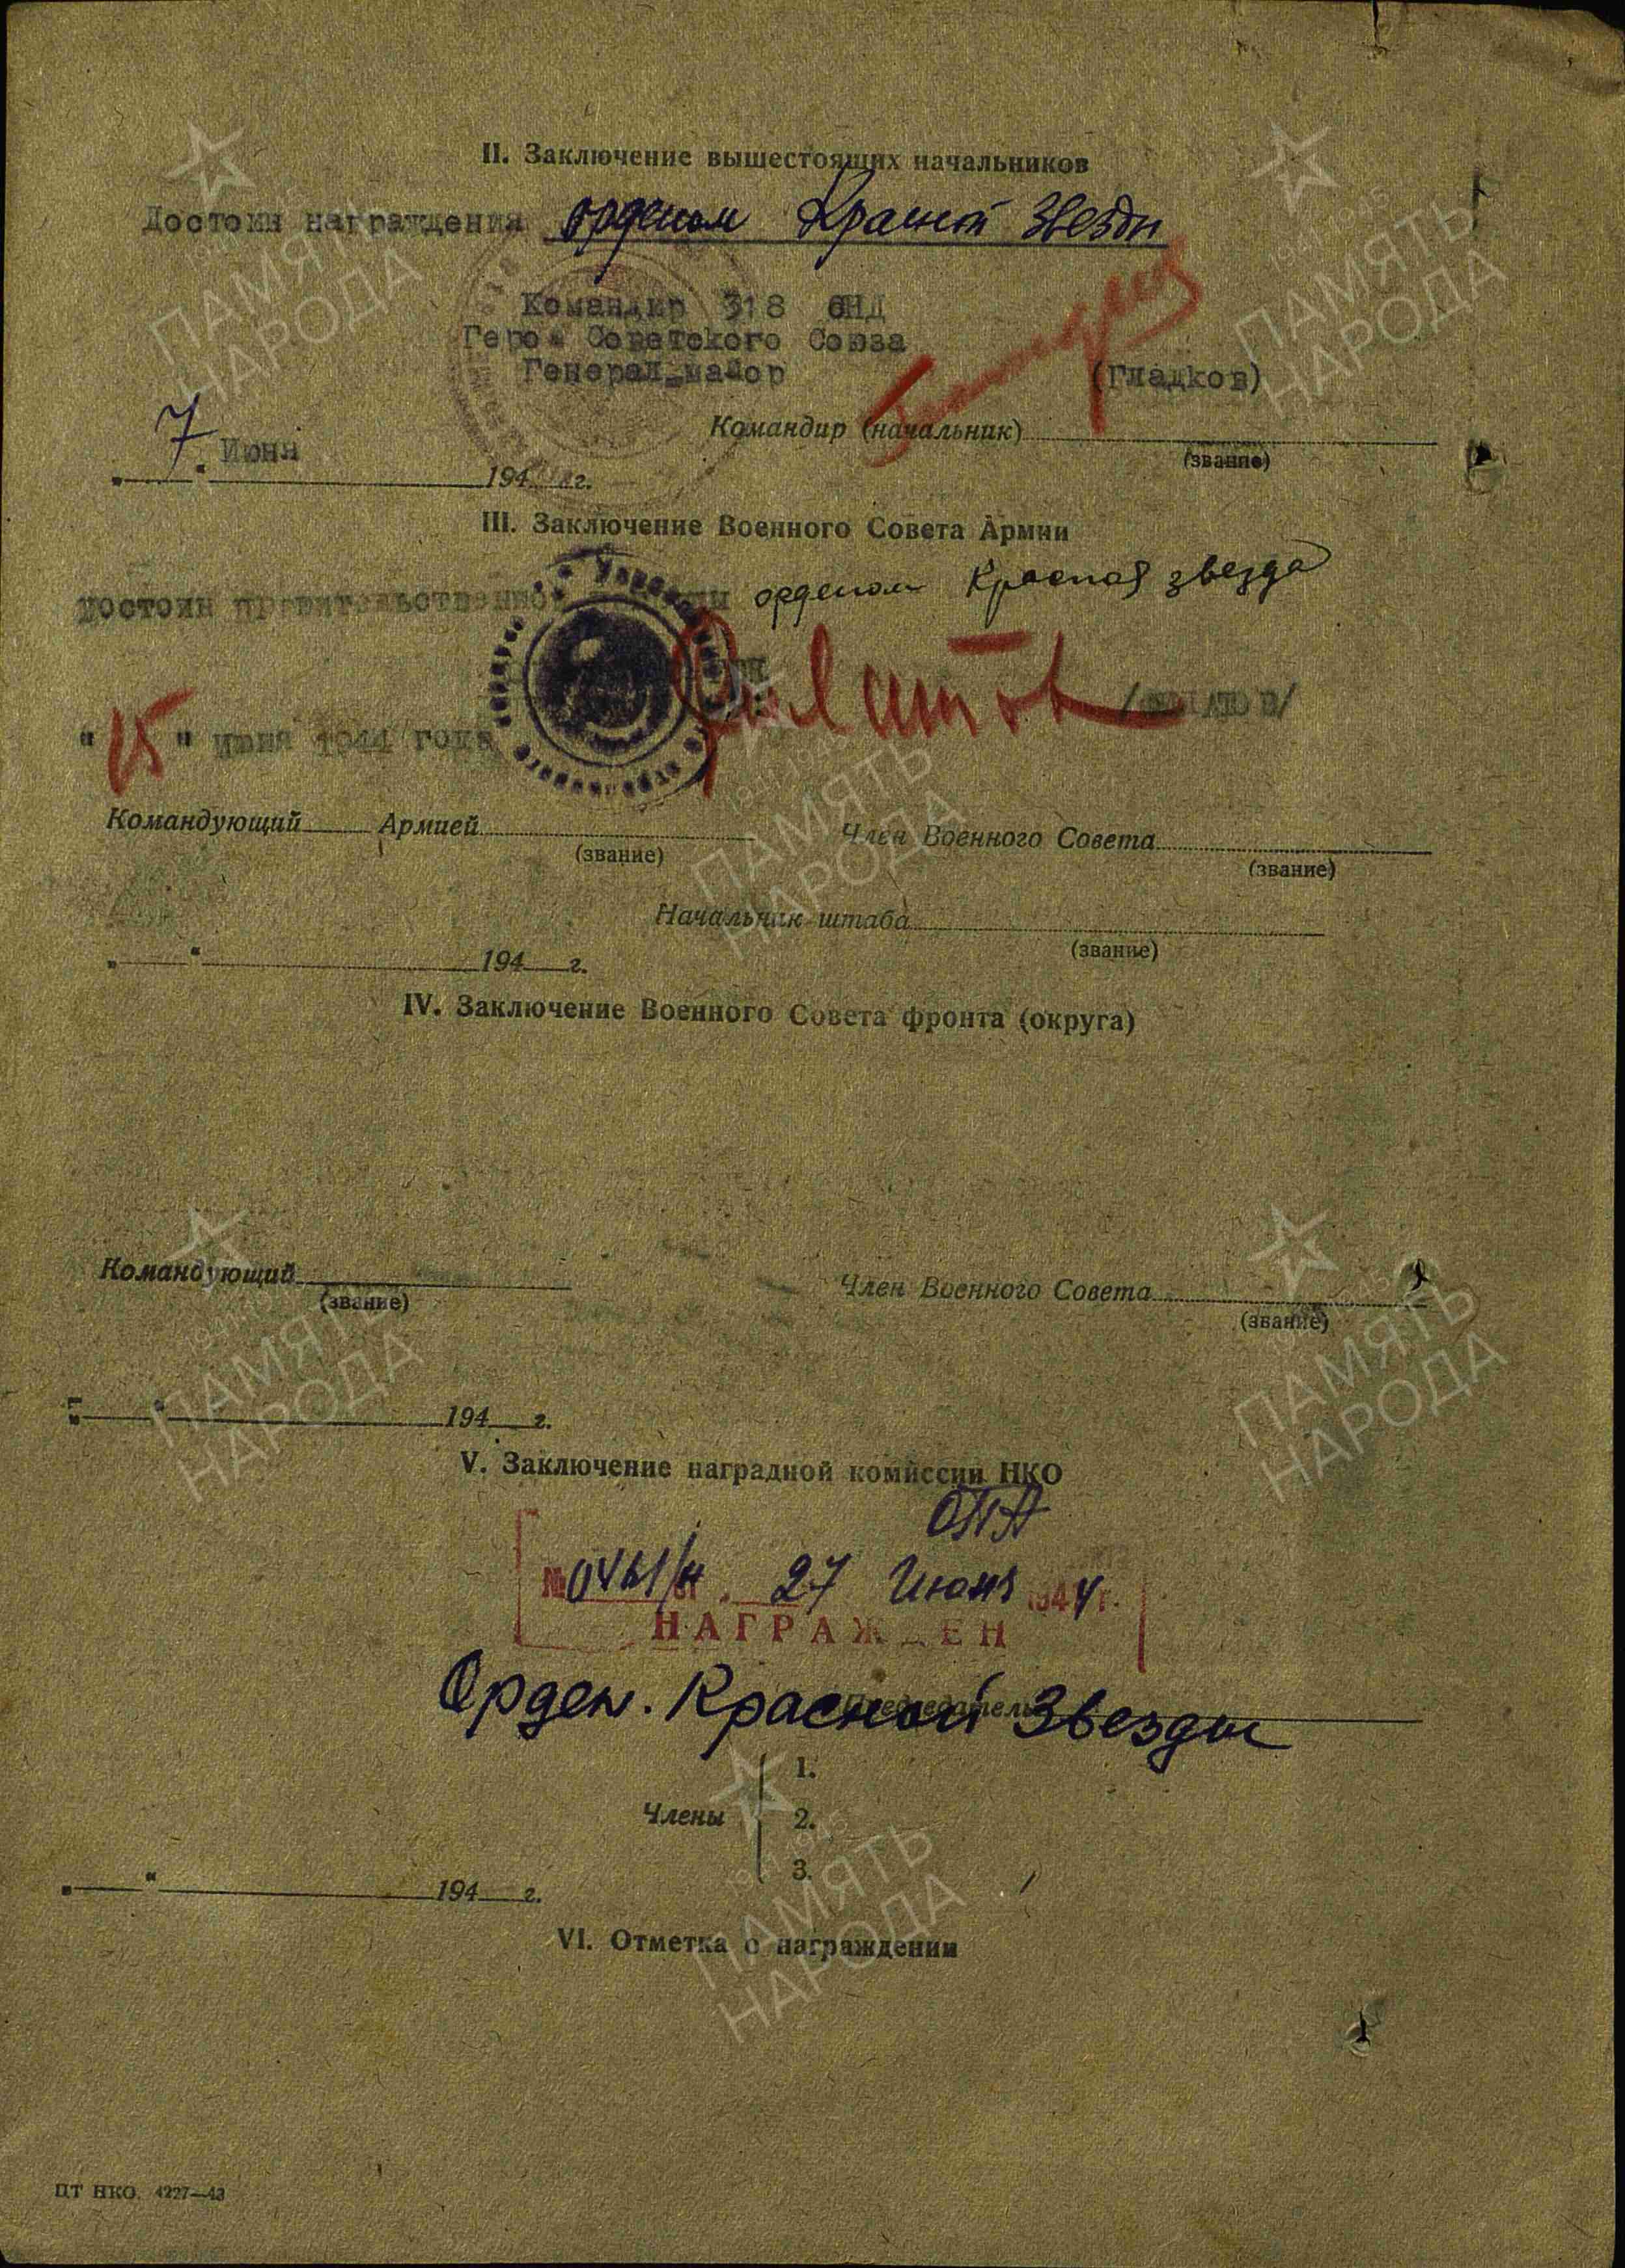 II. Заключение вышестоящих начальников
Достоин награждения орденом Красной Звезды
Командир 318 СНД
Герой Советского Союза
Генерал-майор (Гладков)
Командир (начальник)
(звание)
"7" Июня 194 г.
III. Заключение Военного Совета Армии
достоин правительственной орденом Красная звезда
"15" июня 1944 года
Командующий Армией
(звание)
Член Военного Совета
(звание)
Начальник штаба
(звание)
" " 194 г.
IV. Заключение Военного Совета фронта (округа)
Командующий
(звание)
Член Военного Совета
(звание)
" " 194 г.
V. Заключение наградной комиссии НКО
ОПА
№ 0461/н от 27 Июня 1944 г.
НАГРАЖДЕН
Орден. Красной Звезды
Председатель
Члены
1.
2.
3.
" " 194 г.
VI. Отметка о награждении
ЦТ НКО. 4227—43
1941-1945
ПАМЯТЬ
НАРОДА